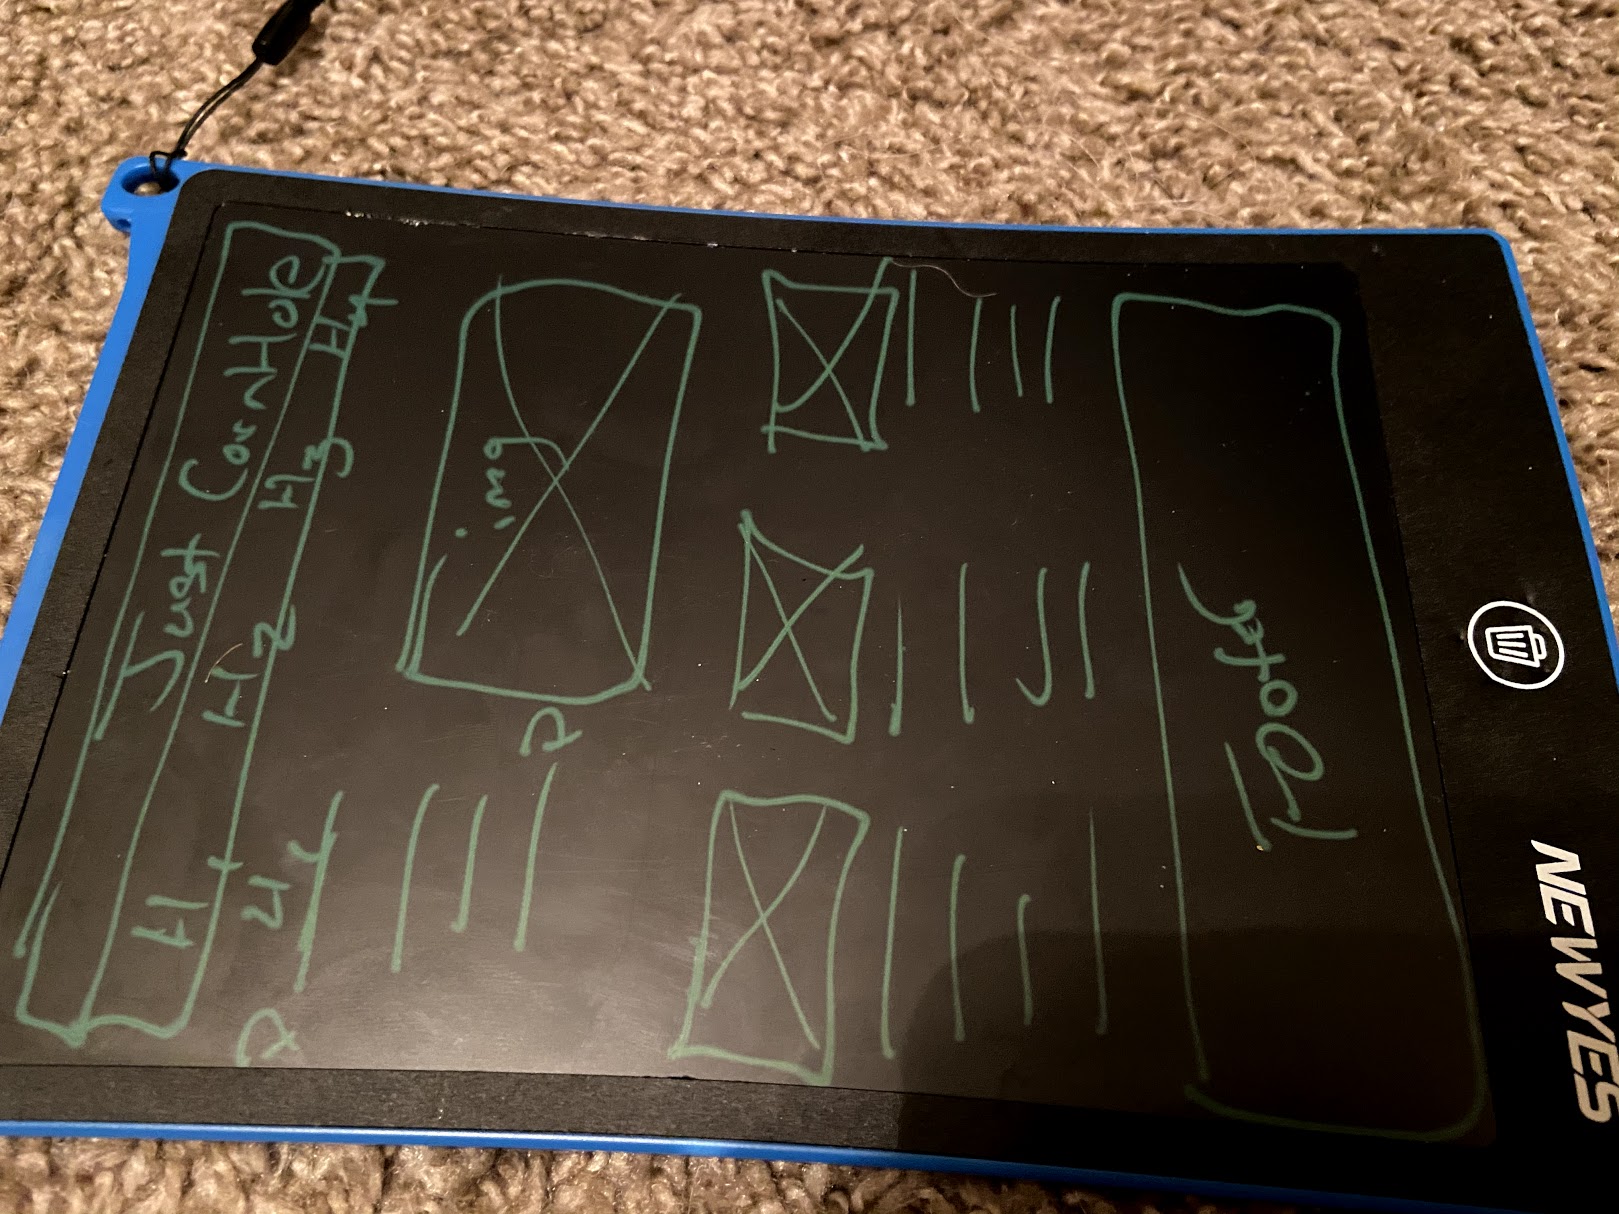 Just CornHole
H1 H2 H3
img
Footer
NEWYES